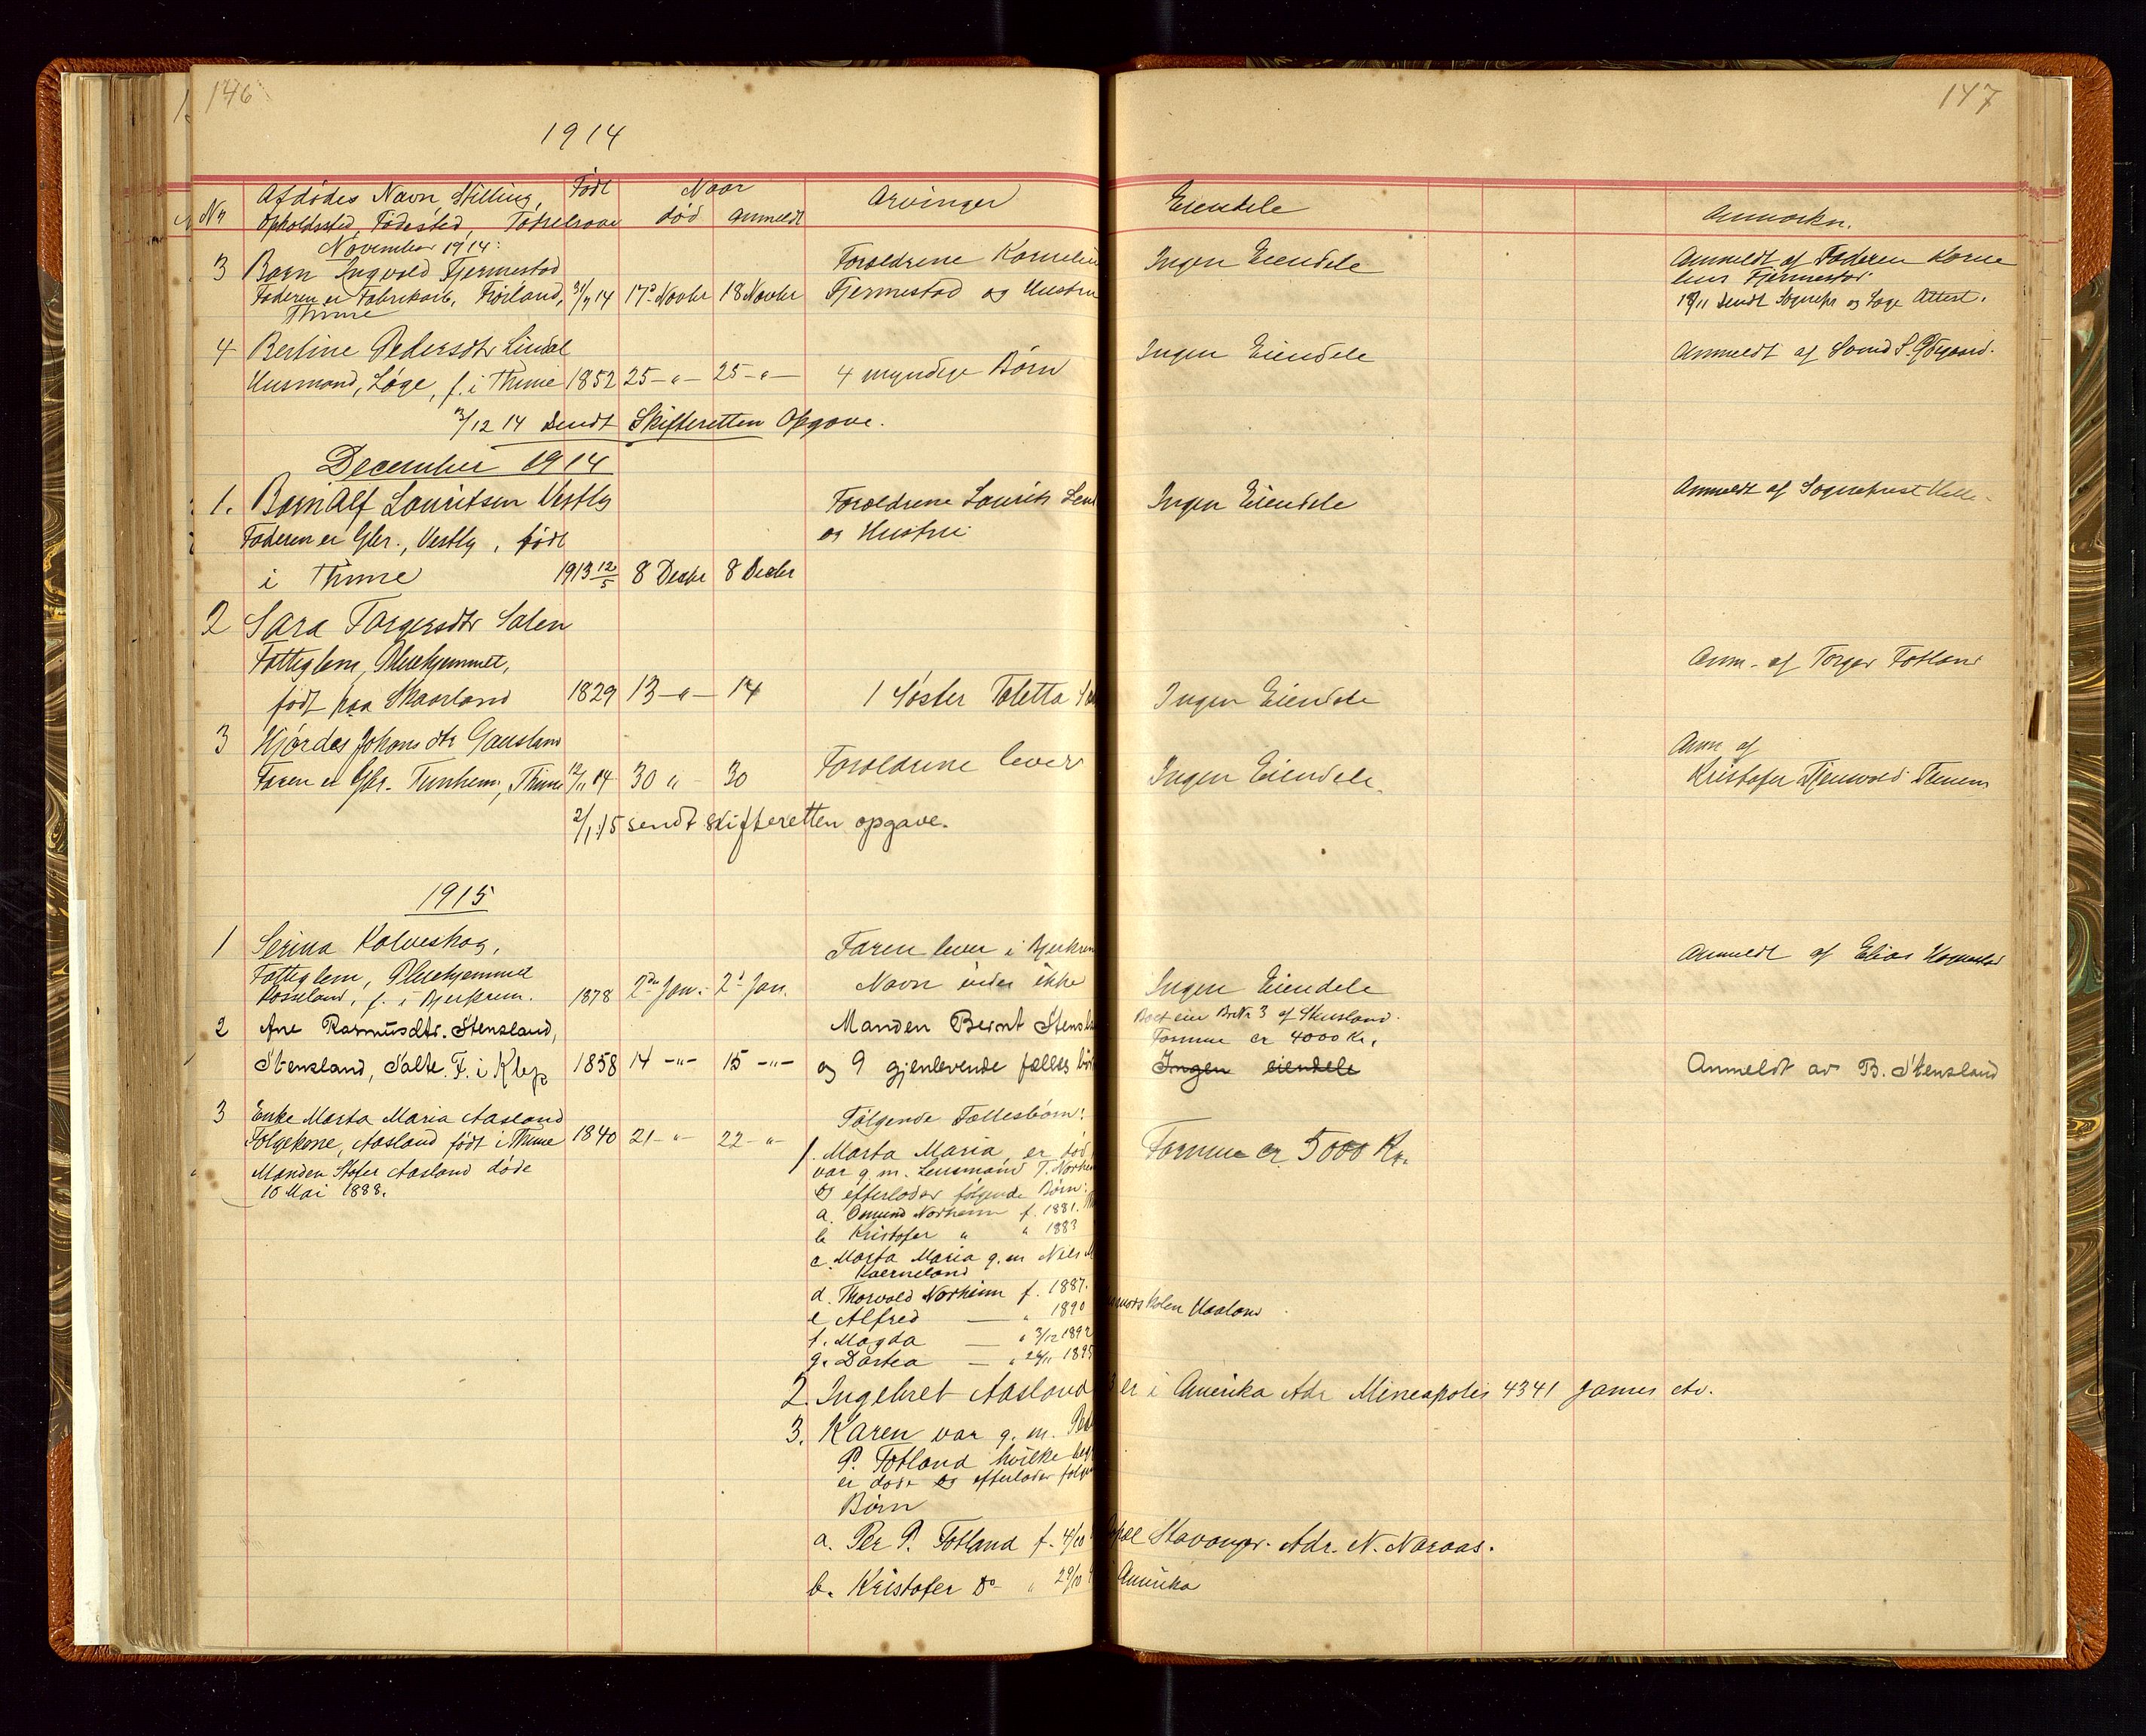 146
1914
Nr
Afdødes Navn, Stilling,
Opholdssted, Fødested,
Født
Naar
død
anmeldt
Arvinger
November 1914:
3 Barn Ingvald Fjermestad
Faderen er Fabrikarb., Frøiland,
Thime
31/7 14
17de Novbr
18 Novbr
Forældrene Kornelius
Fjermestad og Hustru
4 Bertine Pedersdtr Lindal
Husmand, Løge, f. i Thime
1852
25 - " -
25 - " -
4 myndige Børn
3/12 14 Sendt Skifteretten Opgave.
December 1914
1. Barn Alf Lauritsen Vestly
Faderen er Gbr., Vestly, født
i Thime
1913 12/5
8 Decbr
8 Decbr
Forældrene Laurits
og Hustru
2 Sara Torgersdtr Salen
Fattiglem, Pleiehjemmet,
født paa Skaarland
1829
13 - " -
14
1 Søster Toletta
3 Hjørdes Johansdtr Gausland
Faren er Gbr. Tunheim, Thime
12/11 14
30 "
30
Forældrene lever
2/1 15 sendt skifteretten opgave.
1915
1 Serina Kalveskog,
Fattiglem, Pleiehjemmet
Rosseland, f. i Bjerkrem.
1878
2den Jan.
2d Jan.
Faren lever i Bjerkrem
Navn vides ikke
2 Ane Rasmusdtr. Stensland,
Stensland, Salte. F. i Klep
1858
14 - " -
15 - " -
Manden Bernt Stensland
og 9 gjenlevende fælles
3 Enke Marta Maria Aasland
Folgekone, Aasland født i Thime
Manden Stofer Aasland døde
10 Mai 1888.
1840
21 - " -
22 - " -
Følgende Fællesbørn:
1. Marta Maria, er død,
var g. m. Lensmand T. Norheim
og efterlader følgende Børn:
a. Osmund Norheim f. 1881.
b Kristofer " " 1883
c. Marta Maria g. m Nils
Kaerneland
d. Thorvald Norheim f. 1887.
e Alfred — " 1890
f. Magda — " 3/12 1892
g. Dortea — " 26/11 1895
2. Ingebret Aasland
3. Karen var g. m.
P. Fotland hvilke begge
er døde og efterlader følgende
Børn
a. Per P. Fotland f. 4/10
b. Kristofer do " 29/10
147
Eiendele
Anmærkn.
Ingen Eiendele
Anmeldt af Faderen Korne
lius Fjermestad
18/11 sendt Sognepr og Læge Attest.
Ingen Eiendele
Anmeldt af
Ingen Eiendele
Anmeldt af Sogneprest
Ingen Eiendele
Anm. af Torger Fotland
Ingen Eiendele.
Anm af
Kristofer
Ingen Eiendele
Anmeldt af Elias
Boet eier BrNr 3 af Stensland.
Formue er 4000 Kr.
Ingen eiendele
Anmeldt av B. Stensland
Formue er 5000 Kr.
Haaland
er i Amerika Adr Mineapolis 4341 James Av.
Stavanger. Adr. N. Naraas.
Amerika